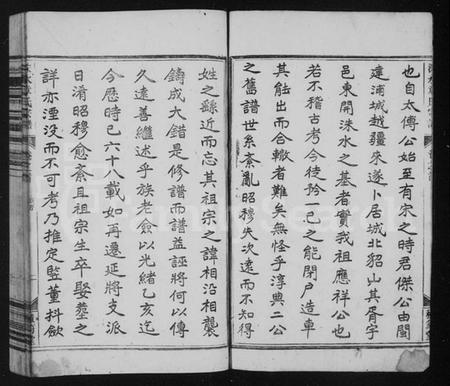 也自太傅公始至有宋之時君傑公由閩
遷浦城越疆來遂卜居城北貂山其胥宇
邑東開洙水之基者實我祖應祥公也
若不稽古考今徒矜一己之能閉戶造車
其能出而合轍者難矣無怪乎淳典二公
之舊譜世系紊亂昭穆失次遠而不知得
姓之繇近而忘其祖宗之諱相沿相襲
鑄成大錯是修譜而譜益誣將何以傳
久遠善繼述乎族老僉以光緒乙亥迄
今歷時已六十八載如再遷延將支派
日淆昭穆愈紊且祖宗生卒娶塟之
詳亦湮没而不可考乃推定監董抖歛